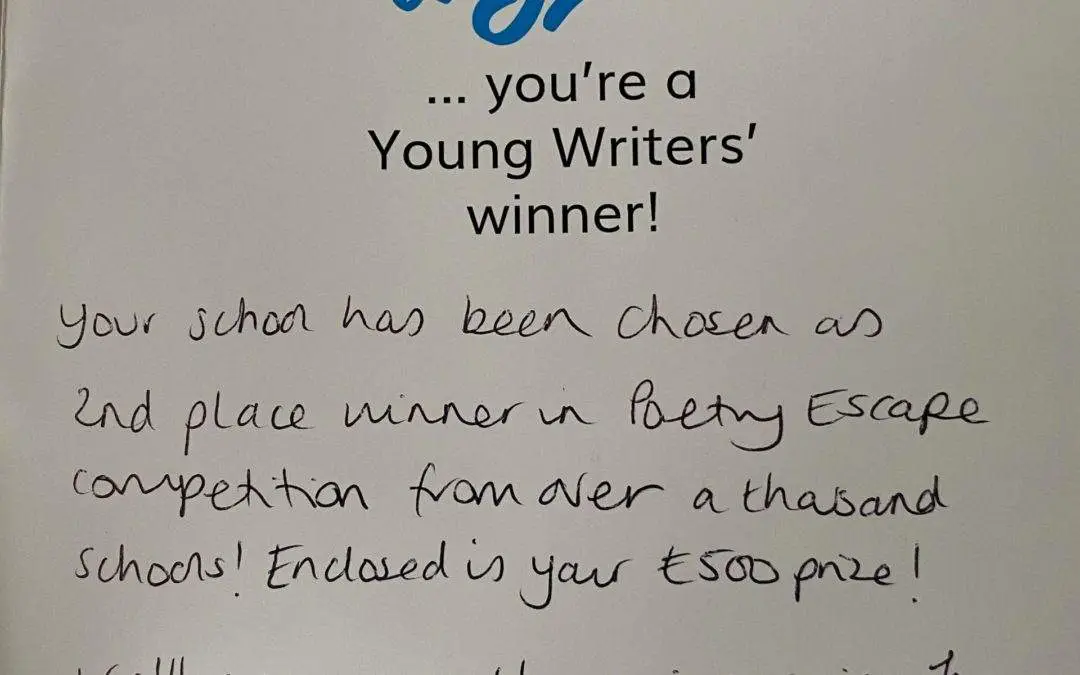 ... you're a
Young Writers'
winner!
Your school has been chosen as
2nd place winner in Poetry Escape
competition from over a thousand
schools! Enclosed is your £500 prize!